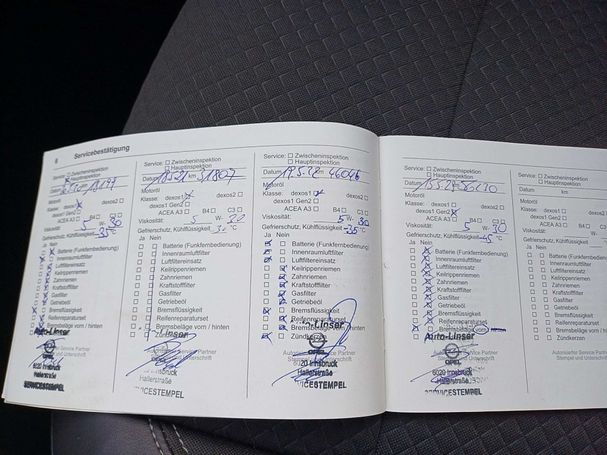 6 Servicebestätigung
Service: Zwischeninspektion
Hauptinspektion
Datum km
Motoröl
Klasse: dexos1 dexos2
dexos1 Gen2
ACEA A3 B4 C3
Viskosität: 5 W- 30
Gefrierschutz, Kühlflüssigkeit -35 °C
Ja Nein
Batterie (Funkfernbedienung)
Innenraumluftfilter
Luftfiltereinsatz
Keilrippenriemen
Zahnriemen
Kraftstofffilter
Gasfilter
Getriebeöl
Bremsflüssigkeit
Reifenreparaturset
Bremsbeläge vorn / hinten
Zündkerzen
Auto-Linser
OPEL
6020 Innsbruck
Hallerstraße
SERVICESTEMPEL
Service: Zwischeninspektion
Hauptinspektion
Datum km 31807
Motoröl
Klasse: dexos1 dexos2
dexos1 Gen2
ACEA A3 B4 C3
Viskosität: 5 W- 30
Gefrierschutz, Kühlflüssigkeit °C
Ja Nein
Batterie (Funkfernbedienung)
Innenraumluftfilter
Luftfiltereinsatz
Keilrippenriemen
Zahnriemen
Kraftstofffilter
Gasfilter
Getriebeöl
Bremsflüssigkeit
Reifenreparaturset
Bremsbeläge vorn / hinten
Linser
Autorisierter Service Partner
Stempel und Unterschrift
6020 Innsbruck
Hallerstraße
SERVICESTEMPEL
Service: Zwischeninspektion
Hauptinspektion
Datum km 46046
Motoröl
Klasse: dexos1 dexos2
dexos1 Gen2
ACEA A3 B4 C3
Viskosität: 5 W- 30
Gefrierschutz, Kühlflüssigkeit -35 °C
Ja Nein
Batterie (Funkfernbedienung)
Innenraumluftfilter
Luftfiltereinsatz
Keilrippenriemen
Zahnriemen
Kraftstofffilter
Gasfilter
Getriebeöl
Bremsflüssigkeit
Reifenreparaturset
Bremsbeläge vorn / hinten
Linser
OPEL
6020 Innsbruck
Hallerstraße
SERVICESTEMPEL
Service: Zwischeninspektion
Hauptinspektion
Datum
Motoröl
Klasse: dexos1 dexos2
dexos1 Gen2
ACEA A3 B4 C3
Viskosität: 5 W- 30
Gefrierschutz, Kühlflüssigkeit °C
Ja Nein
Batterie (Funkfernbedienung)
Innenraumluftfilter
Luftfiltereinsatz
Keilrippenriemen
Zahnriemen
Kraftstofffilter
Gasfilter
Getriebeöl
Bremsflüssigkeit
Reifenreparaturset
Bremsbeläge vorn
Auto-Linser
Autorisierter Service Partner
OPEL
6020 Innsbruck
Hallerstraße
SERVICESTEMPEL
Service: Zwischeninspektion
Hauptinspektion
Datum km
Motoröl
Klasse: dexos1
dexos1 Gen2
ACEA A3 B4
Viskosität:
Gefrierschutz, Kühlflüssigkeit
Ja Nein
Batterie (Funkfernbedienung)
Innenraumluftfilter
Luftfiltereinsatz
Keilrippenriemen
Zahnriemen
Kraftstofffilter
Gasfilter
Getriebeöl
Bremsflüssigkeit
Reifenreparaturset
Bremsbeläge vorn / hinten
Zündkerzen
Autorisierter Service Partner
Stempel und Unterschrift